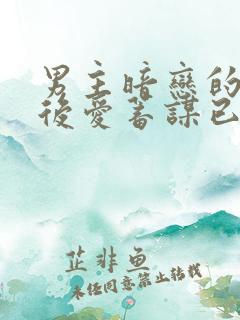 男主暗戀的
後愛蓄謀已
芷非鱼
未经同意禁止转载